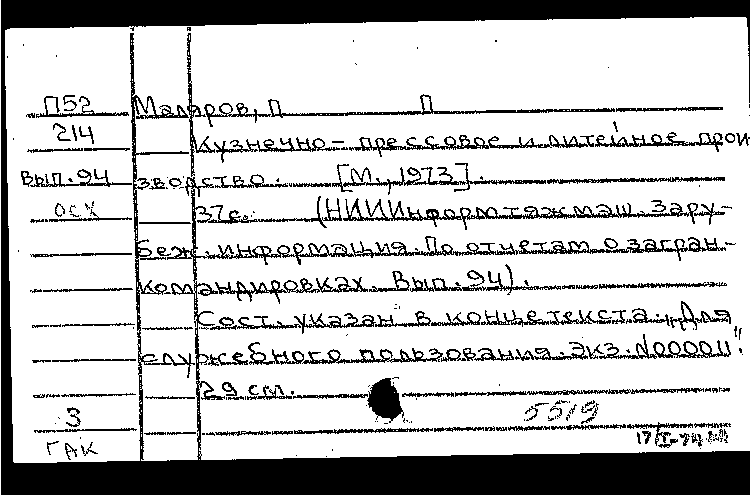 П52 Маляров, П П
214 Кузнечно-прессовое и литейное прои-
Вып.94 зводство. [М., 1973].
осх 37с. (НИИИнформтяжмаш. Зару-
беж. информация. По отчетам о загран-
командировках. Вып. 94).
Сост. указан в конце текста. „Для
служебного пользования. Экз. №000011".
29 см.
3 5519
ГАК 17/I-74